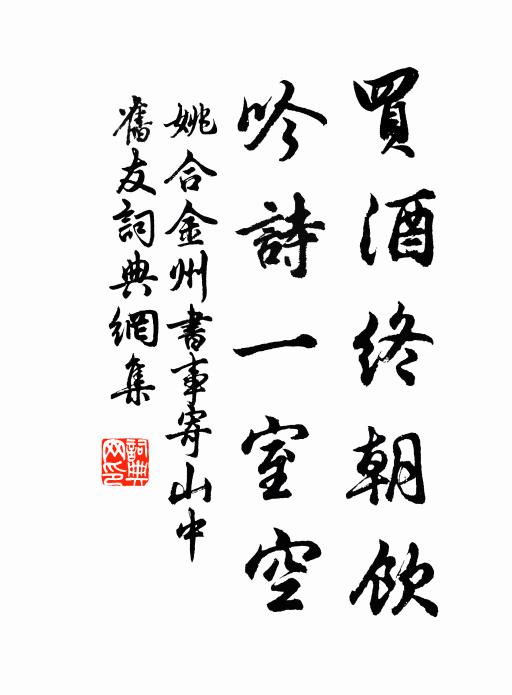 買酒終朝飲
吟詩一室空
姚合金州書事寄山中
舊友詞典網集
詞典
网印